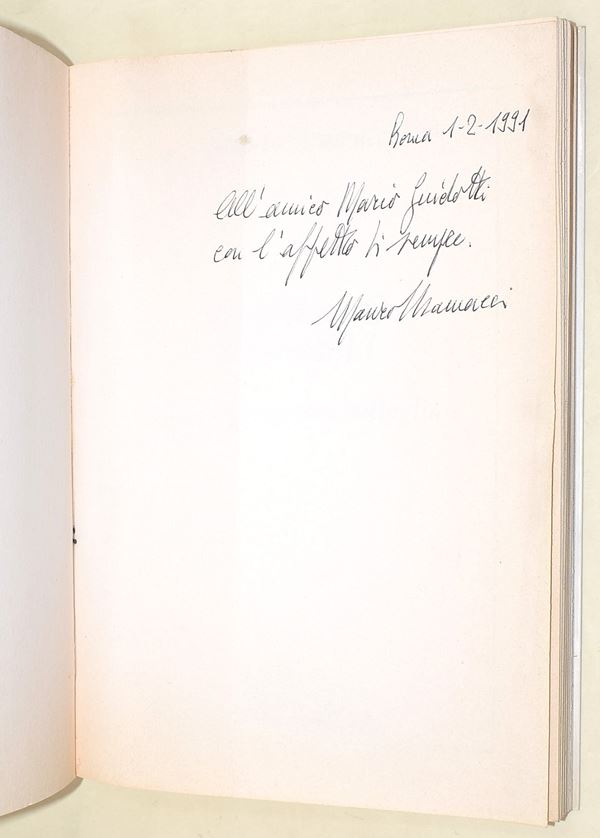 Roma 1-2-1991
All'amico Mario Guidotti
con l'affetto di sempre.
Mauro